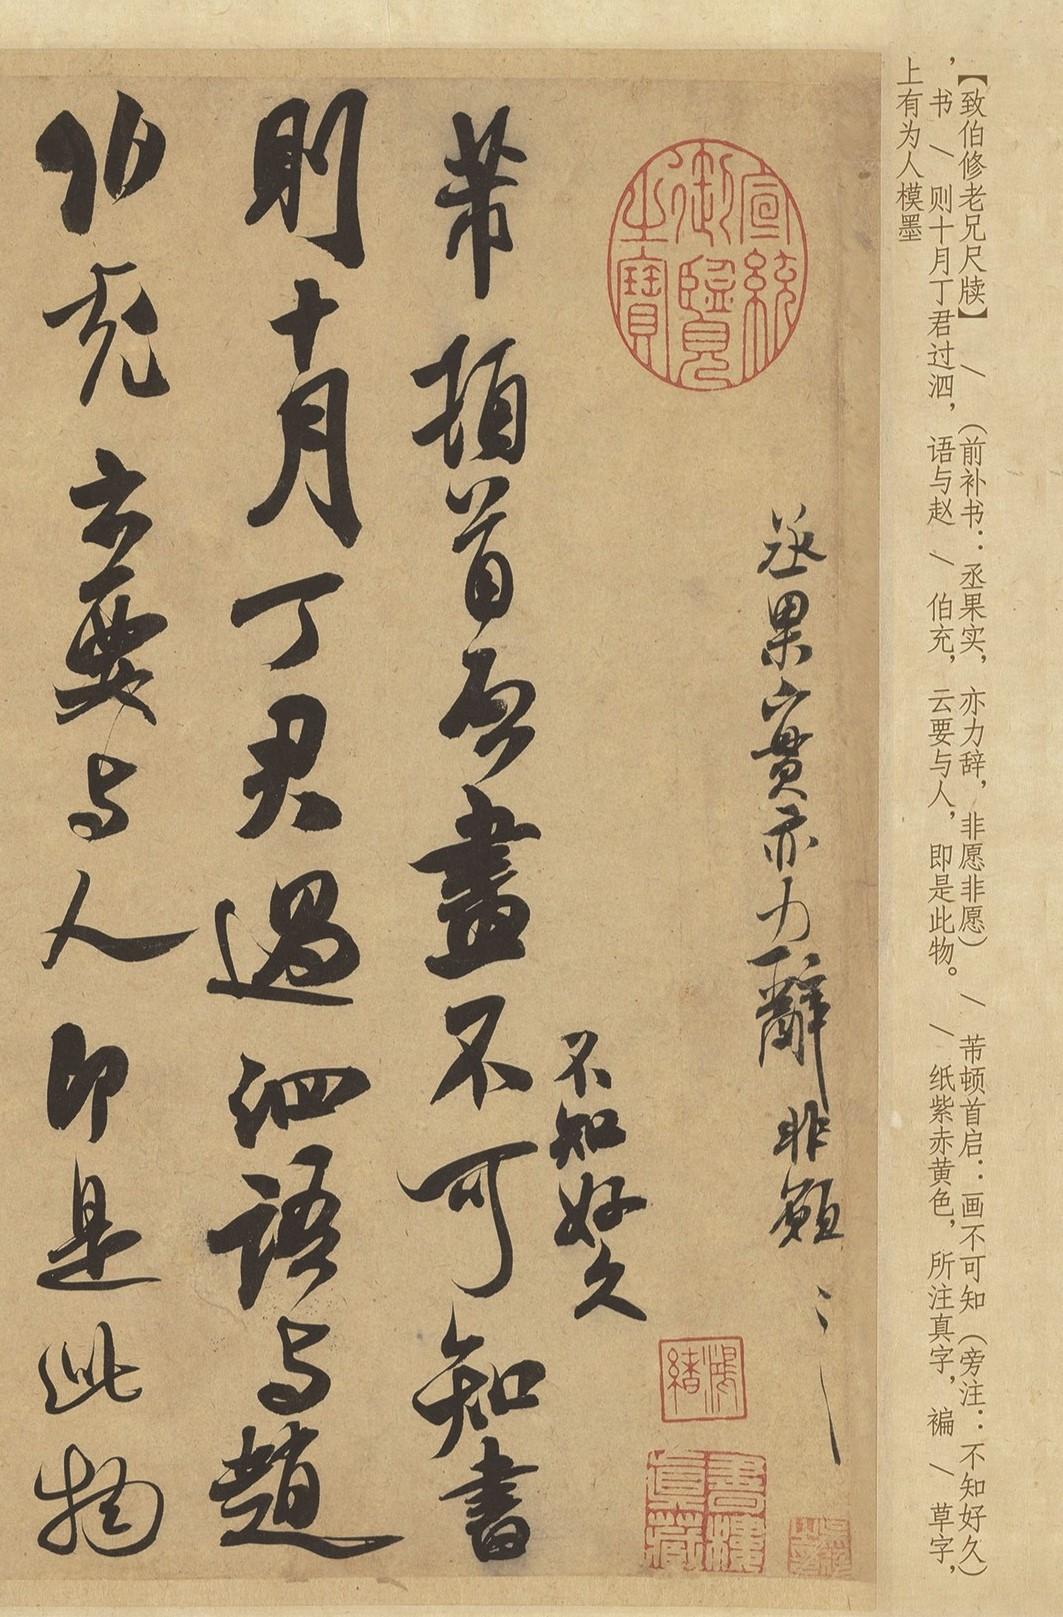 【致伯修老兄尺牍】 \ （前补书：丞果实，亦力辞，非愿非愿） \ 芾顿首启：画不可知（旁注：不知好久）
，书 \ 则十月丁君过泗，语与赵 \ 伯充，云要与人，即是此物。 \ 纸紫赤黄色，所注真字，褊 \ 草字，
上有为人模墨
宣統
御覽
之寶
丞果實亦力辭非願〻
不知好久
芾頓首啓畫不可知書
則十月丁君過泗語与趙
伯充云要与人即是此物
鴻緒
書樓
真藏